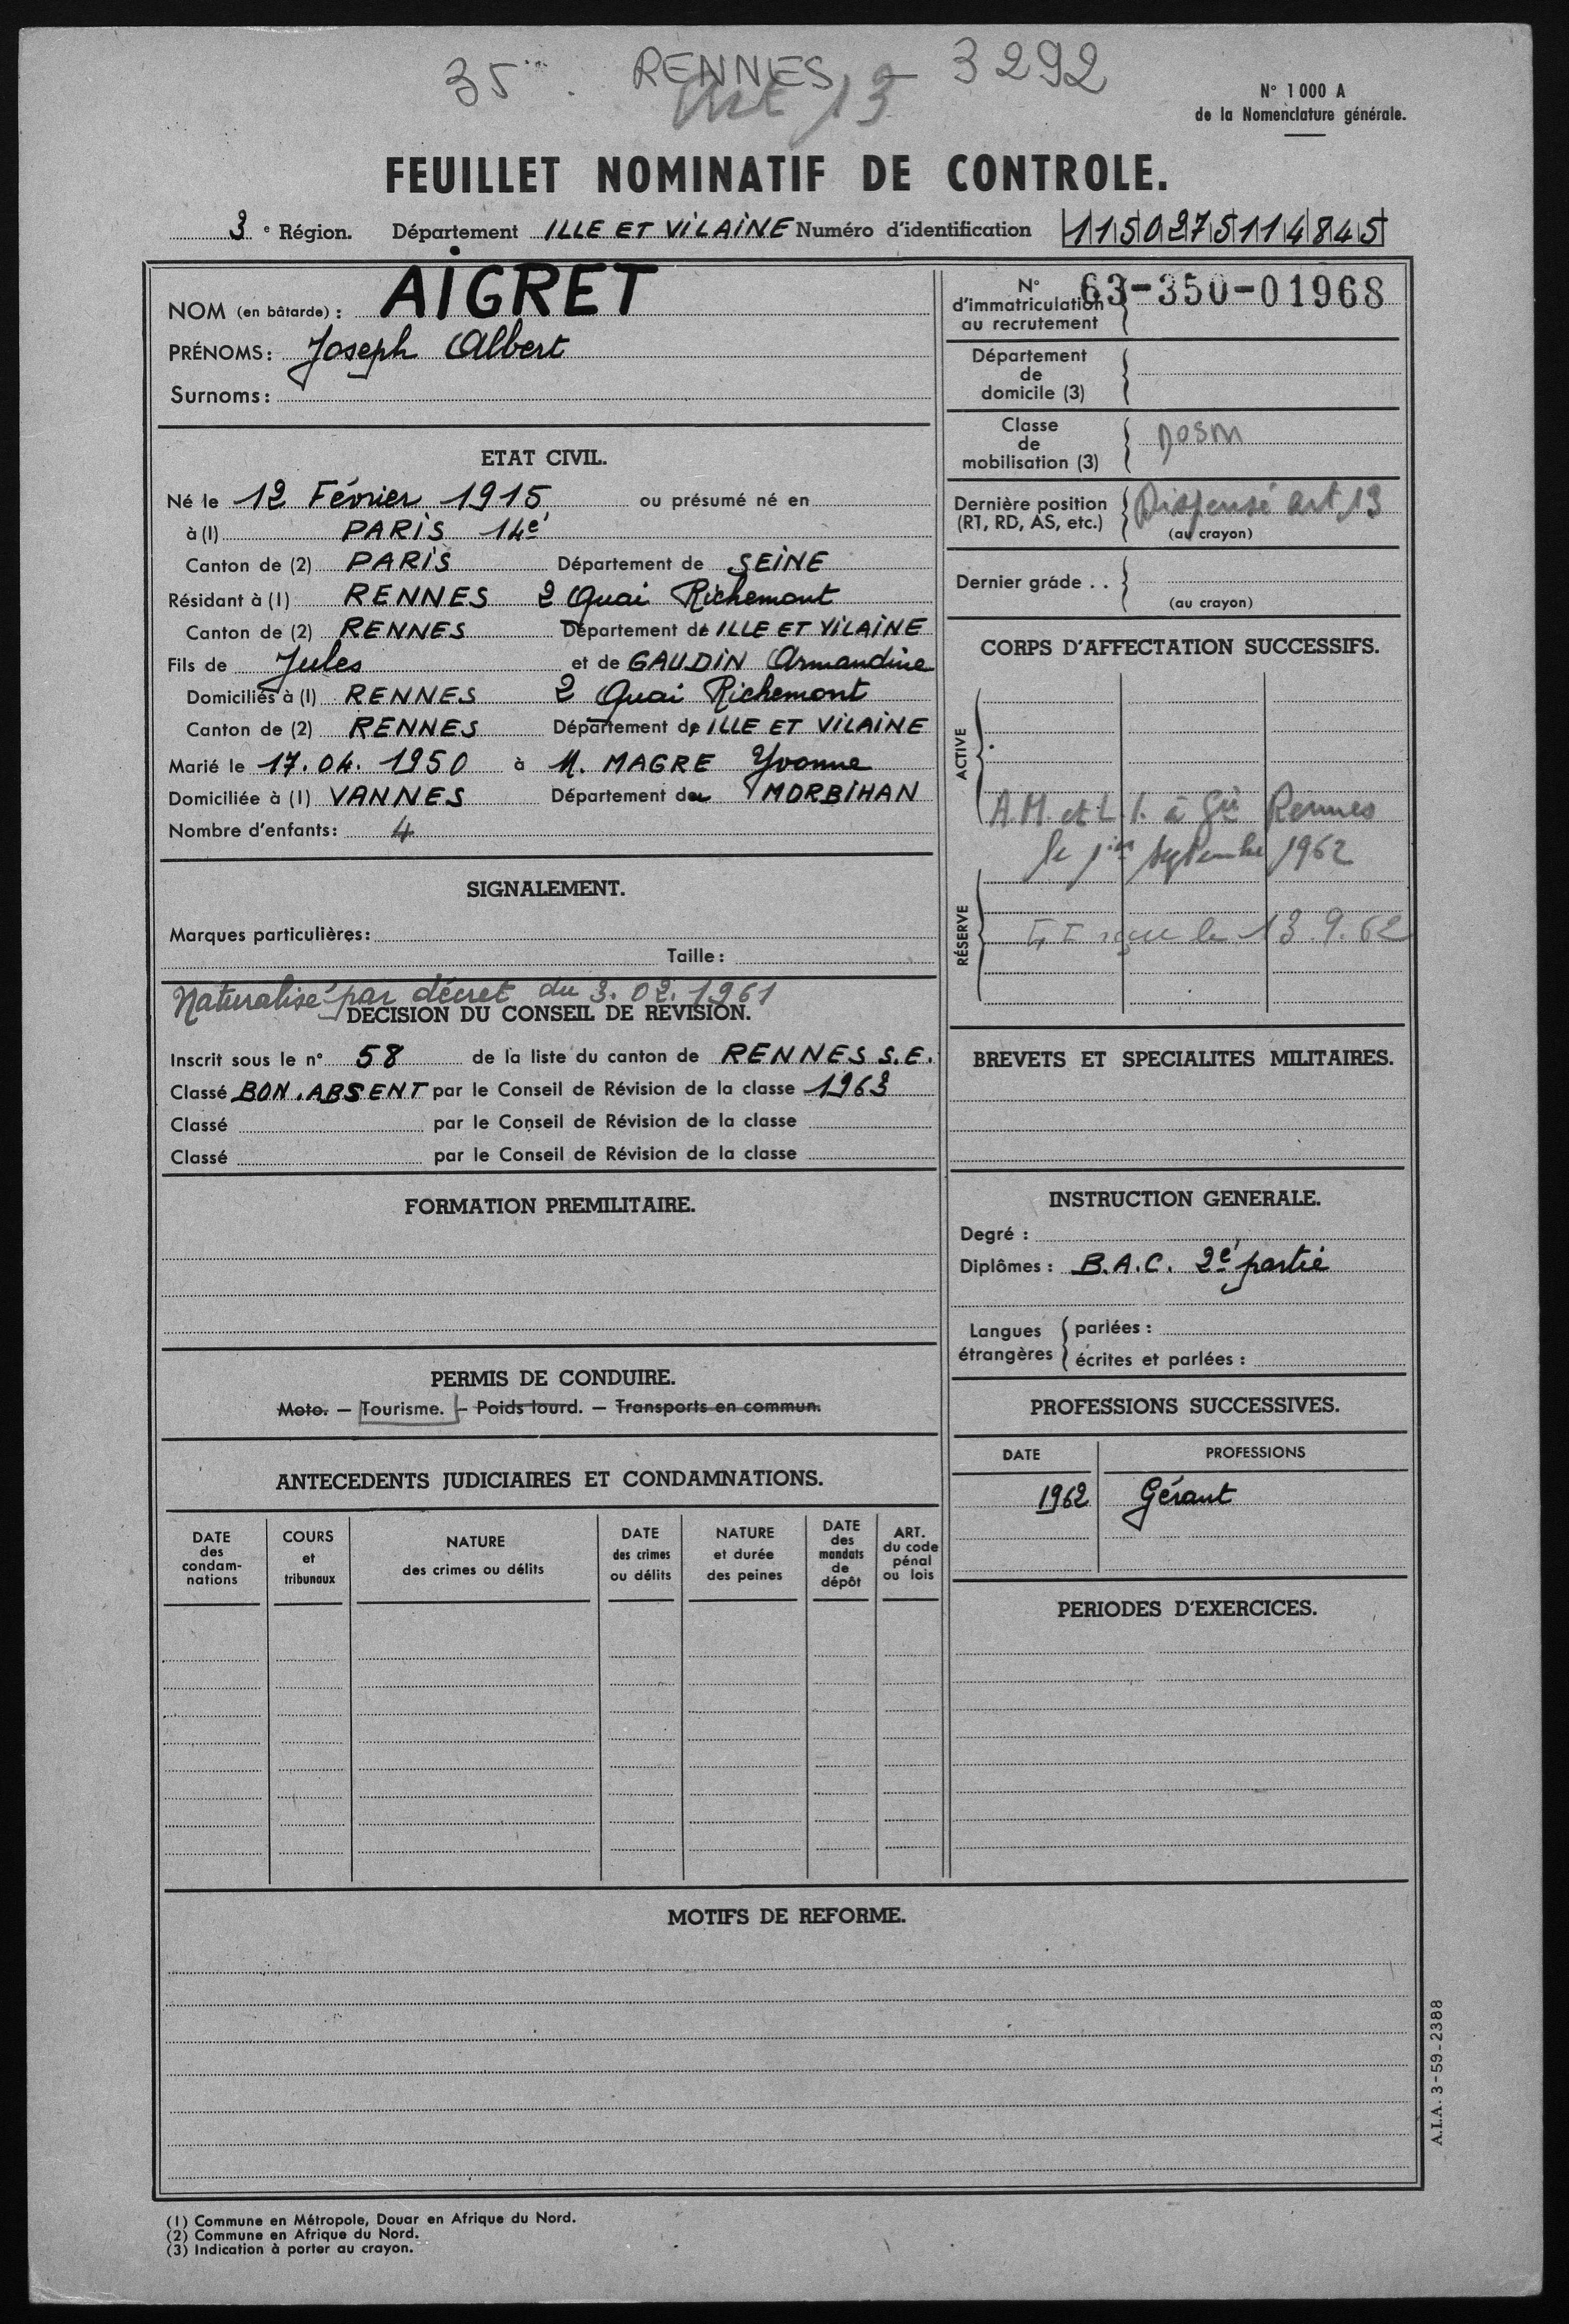 35 . RENNES - 3292
Art 13
N° 1000 A
de la Nomenclature générale.
FEUILLET NOMINATIF DE CONTROLE.
3 e Région. Département ILLE ET VILAINE Numéro d'identification 1150275114845
NOM (en bâtarde) : AIGRET
PRÉNOMS : Joseph Albert
Surnoms :
ETAT CIVIL.
Né le 12 Février 1915 ou présumé né en
à (1) PARIS 14e
Canton de (2) PARIS Département de SEINE
Résidant à (1) RENNES 2 Quai Richemont
Canton de (2) RENNES Département de ILLE ET VILAINE
Fils de Jules et de GAUDIN Armandine
Domiciliés à (1) RENNES 2 Quai Richemont
Canton de (2) RENNES Département de ILLE ET VILAINE
Marié le 17.04.1950 à M. MAGRE Yvonne
Domiciliée à (1) VANNES Département du MORBIHAN
Nombre d'enfants : 4
SIGNALEMENT.
Marques particulières :
Taille :
Naturalisé par décret du 3.02.1961
DECISION DU CONSEIL DE REVISION.
Inscrit sous le n° 58 de la liste du canton de RENNES S.E.
Classé BON.ABSENT par le Conseil de Révision de la classe 1963
Classé par le Conseil de Révision de la classe
Classé par le Conseil de Révision de la classe
FORMATION PREMILITAIRE.
PERMIS DE CONDUIRE.
Moto. — Tourisme. — Poids lourd. — Transports en commun.
ANTECEDENTS JUDICIAIRES ET CONDAMNATIONS.
DATE des condam-nations
COURS et tribunaux
NATURE des crimes ou délits
DATE des crimes ou délits
NATURE et durée des peines
DATE des mandats de dépôt
ART. du code pénal ou lois
N° d'immatriculation au recrutement 63-350-01968
Département de domicile (3)
Classe de mobilisation (3) DOSM
Dernière position (RT, RD, AS, etc.) Dispensé art 13
(au crayon)
Dernier grade . .
(au crayon)
CORPS D'AFFECTATION SUCCESSIFS.
ACTIVE
A.M. et L.I. à Rennes
le 1er septembre 1962
RÉSERVE
reçu le 13.9.62
BREVETS ET SPECIALITES MILITAIRES.
INSTRUCTION GENERALE.
Degré :
Diplômes : B.A.C. 2e partie
Langues étrangères
parlées :
écrites et parlées :
PROFESSIONS SUCCESSIVES.
DATE PROFESSIONS
1962 Gérant
PERIODES D'EXERCICES.
MOTIFS DE REFORME.
A.I.A. 3-59-2388
(1) Commune en Métropole, Douar en Afrique du Nord.
(2) Commune en Afrique du Nord.
(3) Indication à porter au crayon.